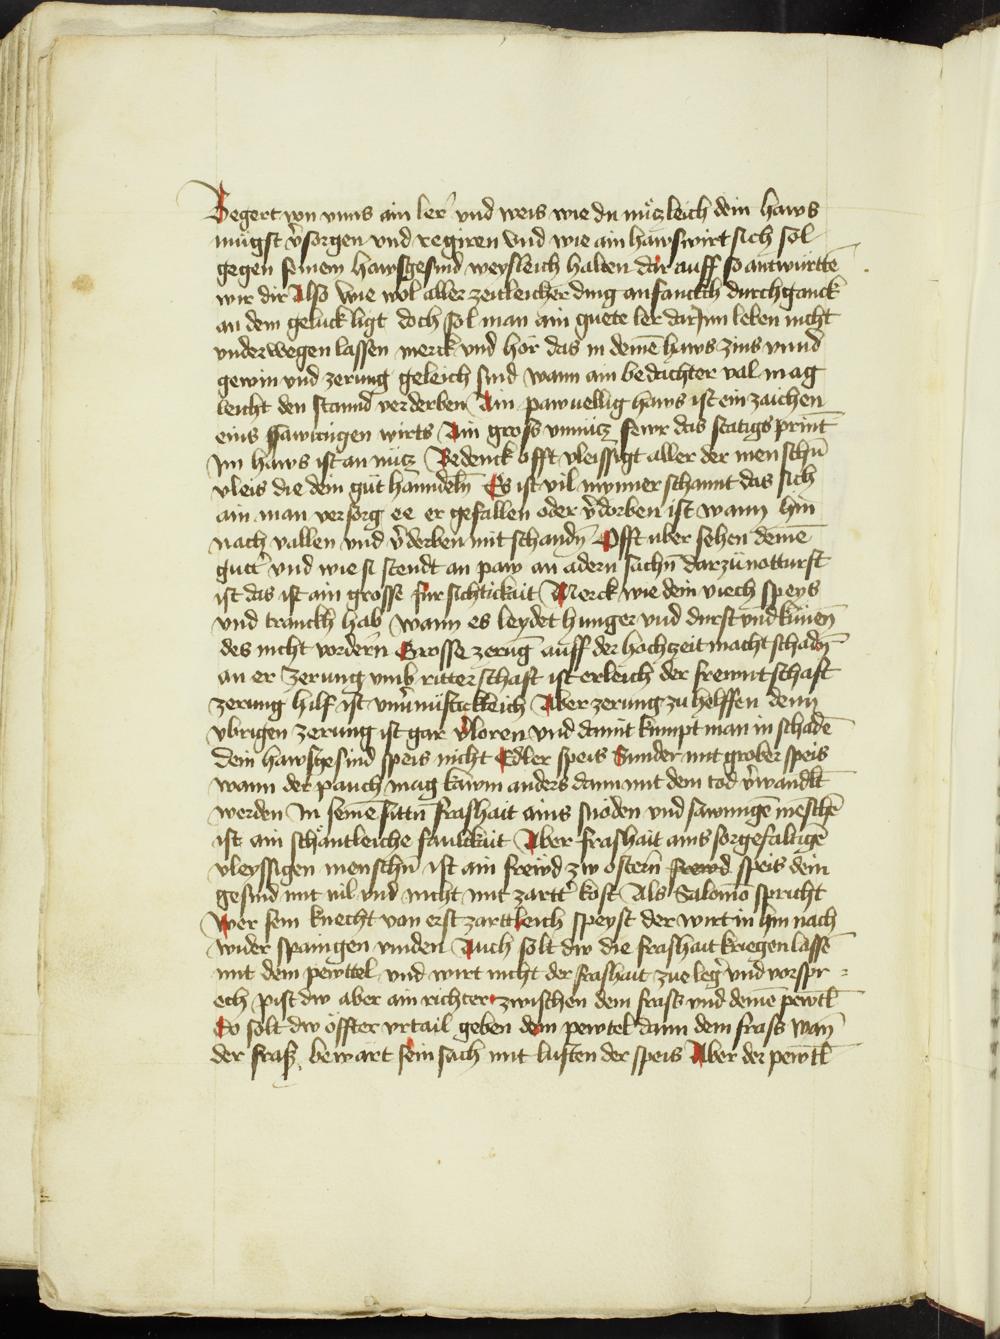 Begert von vnns ain ler vnd weis wie du nüczleich dein haws
mügst v̄sorgen vnd regiren Vnd wie ain hawswirt sich sol
gegen seinem hawsgesind weysleich halten dar auff so antwürttē
wir dir Also Wie wol aller zeitleicher ding anfanckh durchganck
an dem gelück ligt doch sol man ain guete ler darInn leben nicht
vnderwegen lassen merck vnd hör das in deinē haws zins vnnd
gewin vnd zerung geleich sind wann ain bedachter val mag
leicht den stannd verderben Ain pawuellig haws ist ein zaichen
eins sawmigen wirts Ain gross vnnücz fewr das statigs print̄
Im haws ist an nücz Bedenck offt vleissigt aller der menschn̄
vleis die dein güt hanndeln̄ Es ist vil mynner schannt das sich
ain man versorg ee er gefallen oder v̄dorben ist wann hin
nach vallen vnd v̄derben mit schandn̄ Offt vber sehen deinē
gutt vnd wie si stendt an paw an adern sachn̄ darzü notturft
ist das ist ain grosse für sichtickait Merck wie dein viech speys
vnd tranckh hab wann es leydet hunger vnd durst vnd künen̄
des nicht vordern̄ Grosse zeruḡ auff der hochzeit macht schadn̄
an er Zerung vmb ritterschaft ist erleich der frewntschaft
zerung hilf ist v̄nüfticklich Aber zerung zu helffen denn
vbrigen zerung ist gar v̄loren vnd damit kumpt man in schadē
Dein hawsgesind speis nicht Edler speis Sunder mit grober speis
wann der pauch mag kawm anders dann mit dem tod v̄wandlt̄
werden In seinē sittn̄ frashait ains snöden vnd sawmigē meschē
ist ain schantleiche faulckait Aber frashait ains sorgefaltigē
vleyssigen menschn̄ ist ain frewd zw ostern̄ frewd speis dein
gesind mit vil vnd nicht mit zartt kost Als Salomō spricht
Wer sein knecht von erst zarttleich speyst der wirt in hin nach
wider spanigen vinden Auch solt dw die frashait kriegen lassē
mit dem pewttel vnd wirt nicht der frashait zue leg vnd vorspr=
ech pist dw aber ain richter zwischen dem frass vnd deinē pewtl̄
So solt dw öffter vrtail geben dem pewtel dann dem frass wan̄
der frass bewart sein sach mit lusten der speis Aber der pewtl̄